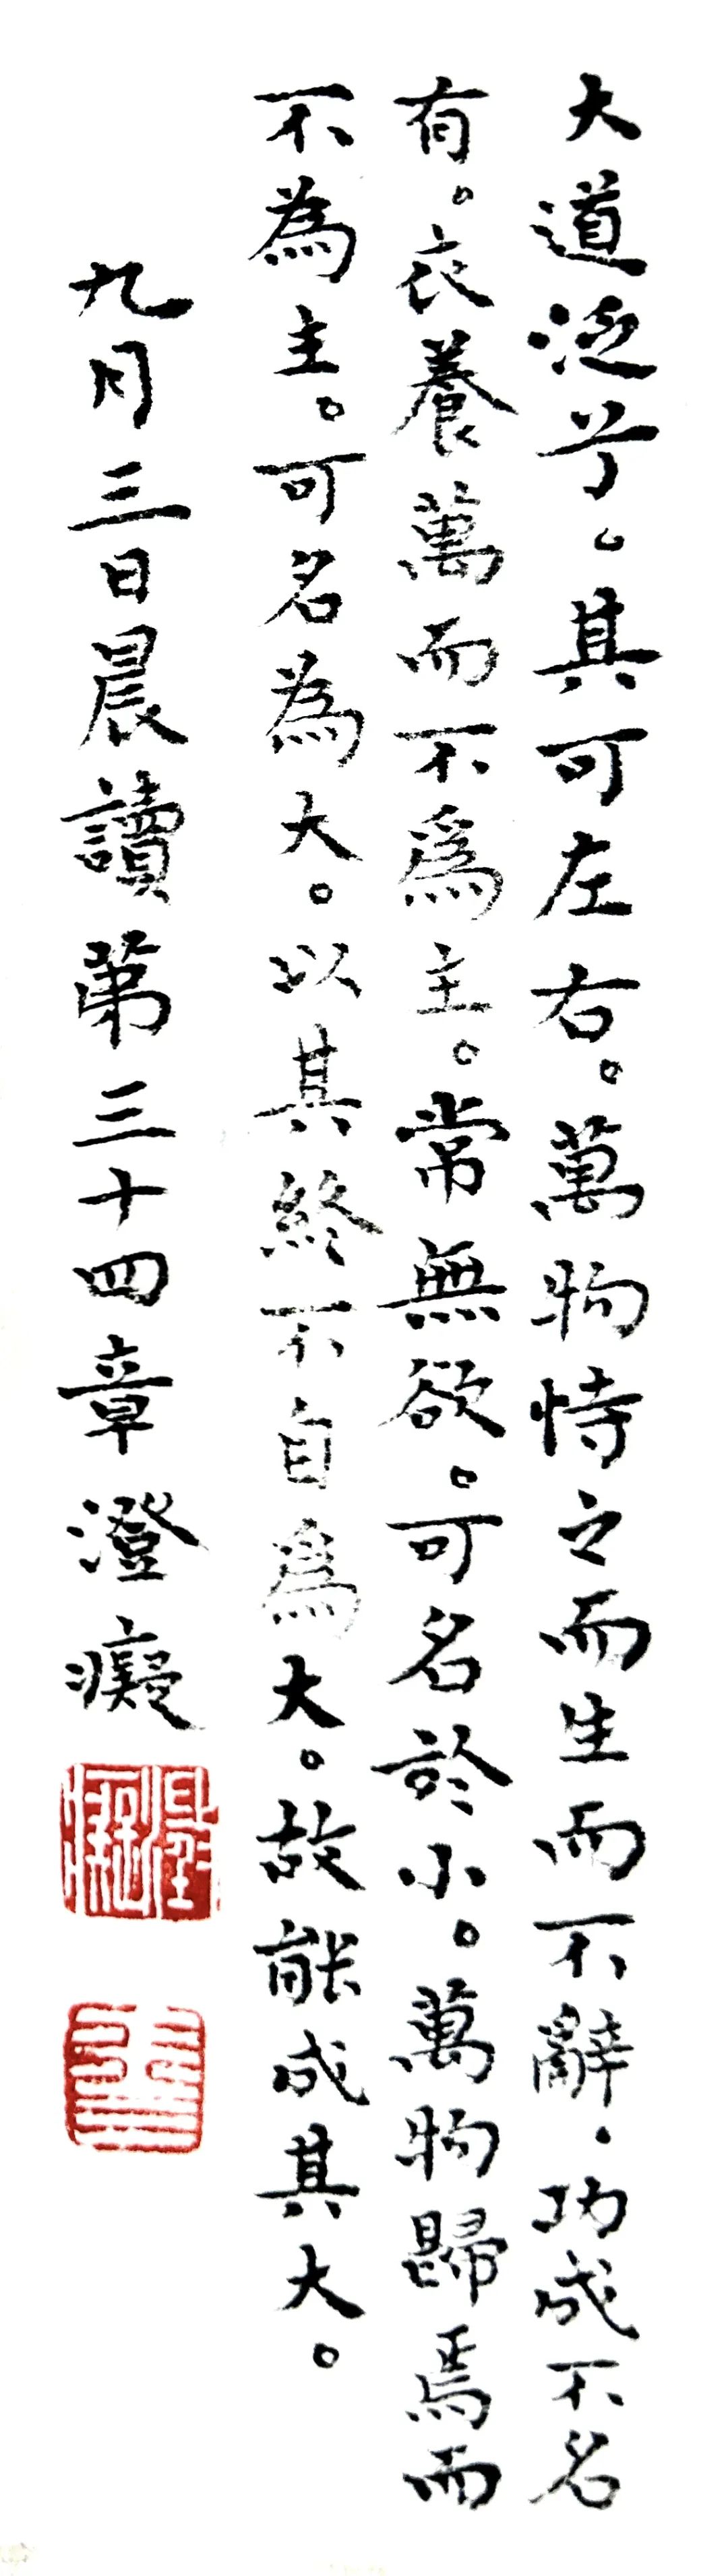 大道泛兮。其可左右。萬物恃之而生而不辭。功成不名
有。衣養萬而不爲主。常無欲。可名於小。萬物歸焉而
不為主。可名為大。以其終不自爲大。故能成其大。
九月三日晨讀第三十四章澄癡
澄癡